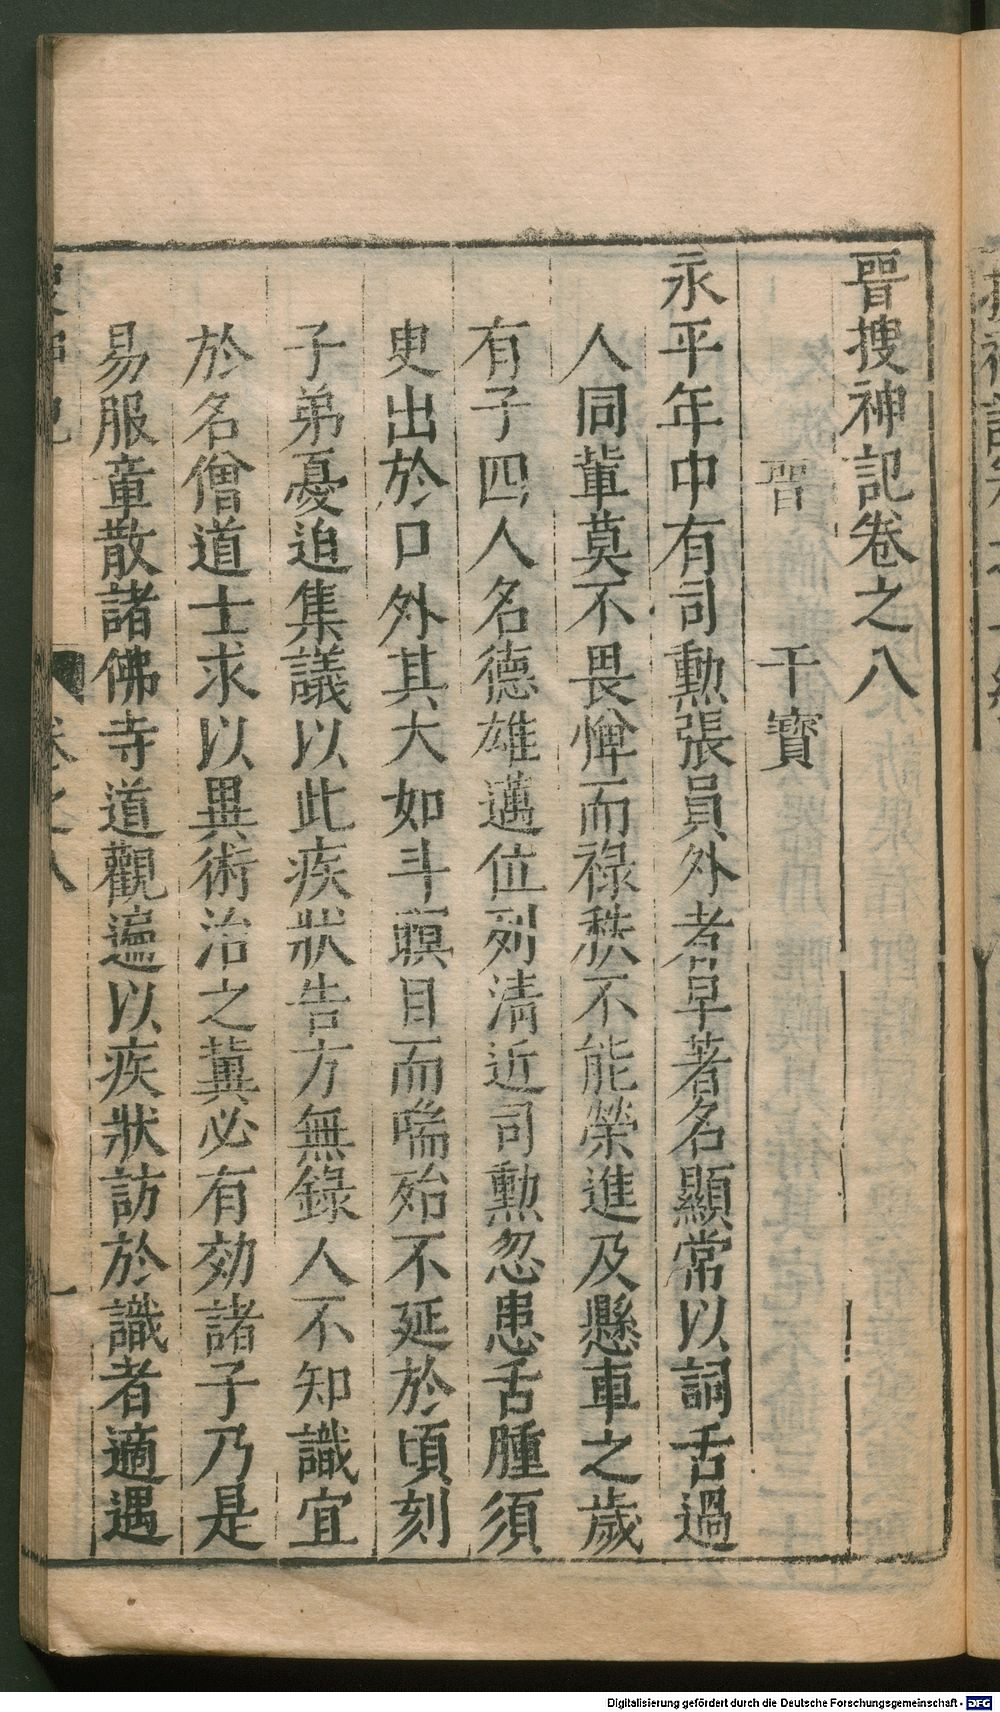 晋搜神記卷之八
晋 干寶
永平年中有司勲張員外者早著名顯常以詞舌過
人同軰莫不畏憚而祿秩不能榮進及懸車之歲
有子四人名德雄邁位列清近司勲忽患舌腫須
臾出於口外其大如斗瞑目而喘殆不延於頃刻
子弟憂迫集議以此疾狀告方無錄人不知識宜
於名僧道士求以異術治之冀必有効諸子乃是
易服章散諸佛寺道觀遍以疾狀訪於識者適遇
搜神記 卷之八 一
Digitalisierung gefördert durch die Deutsche Forschungsgemeinschaft - DFG